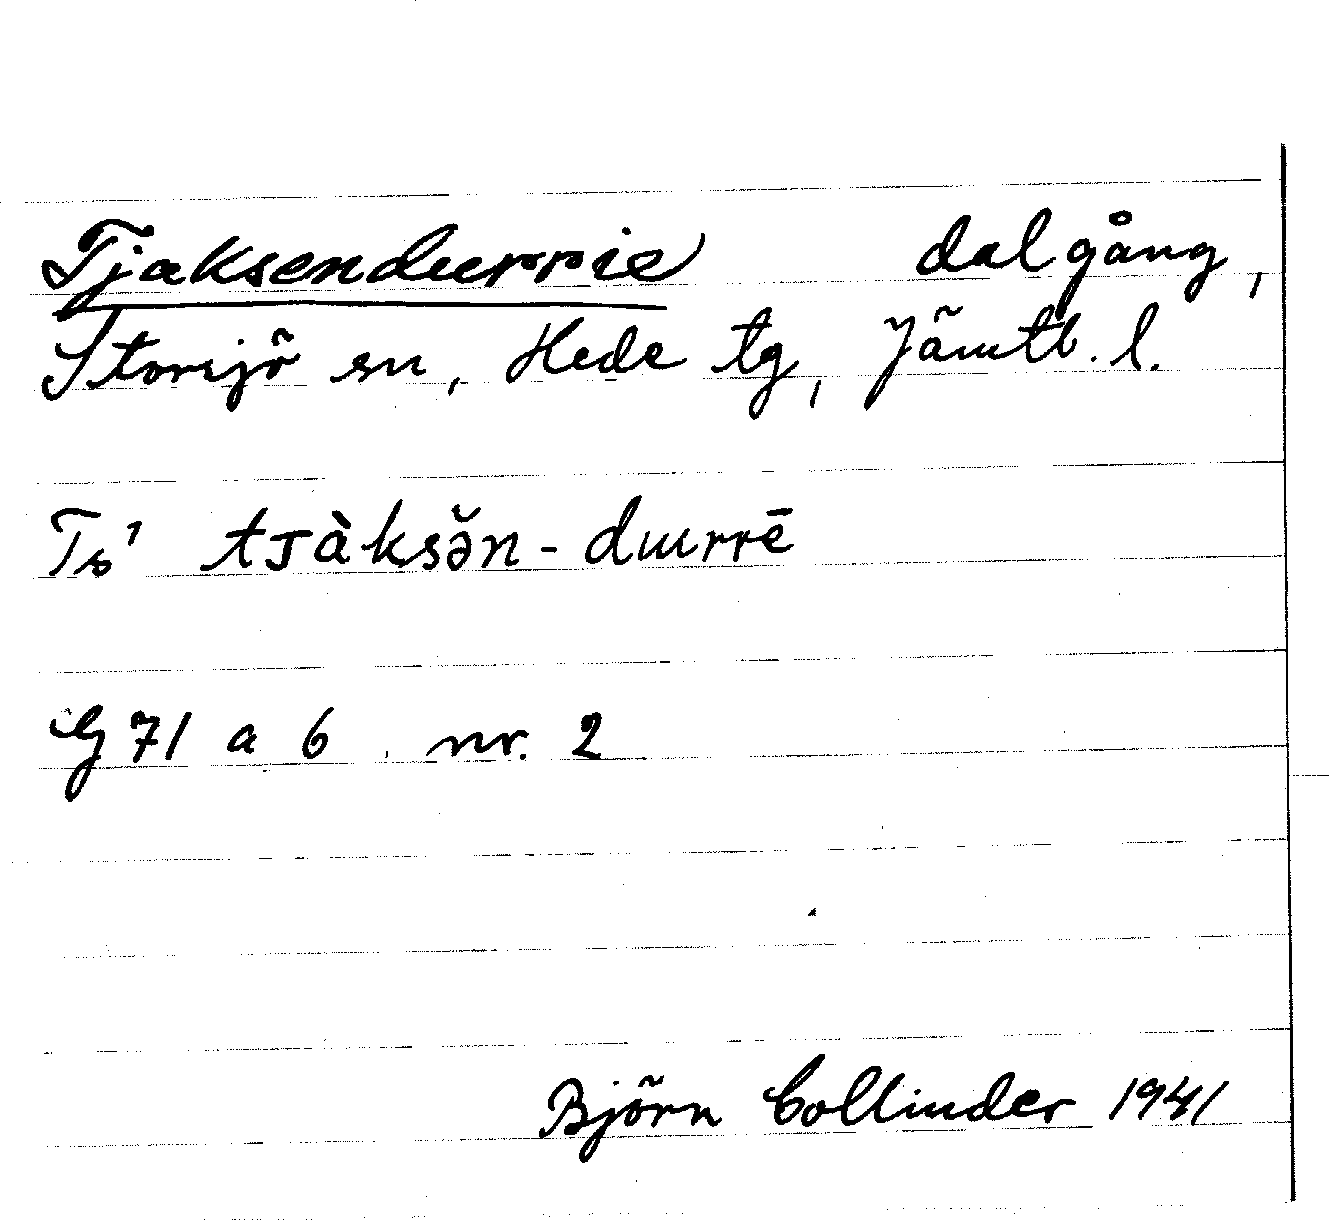 Tjaksendurrie dalgång,
Storsjö sn, Hede tg, Jämtl. l.
Ts¹ tᴊàksə̆n-duɯrrē
G 71 a 6, nr. 2
Björn Collinder 1941